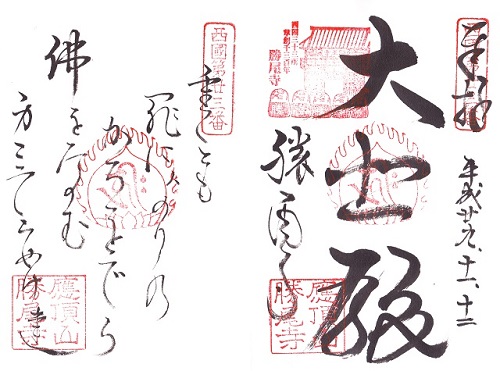 奉拝
平成廿九、十一、十二
大士殿
西國三十三所
草創千三百年
勝尾寺
勝尾寺
應頂山
勝尾寺
西國第廿三番
重くとも
罪にはのりの
かちをでら
佛をたのむ
應頂山
勝尾寺